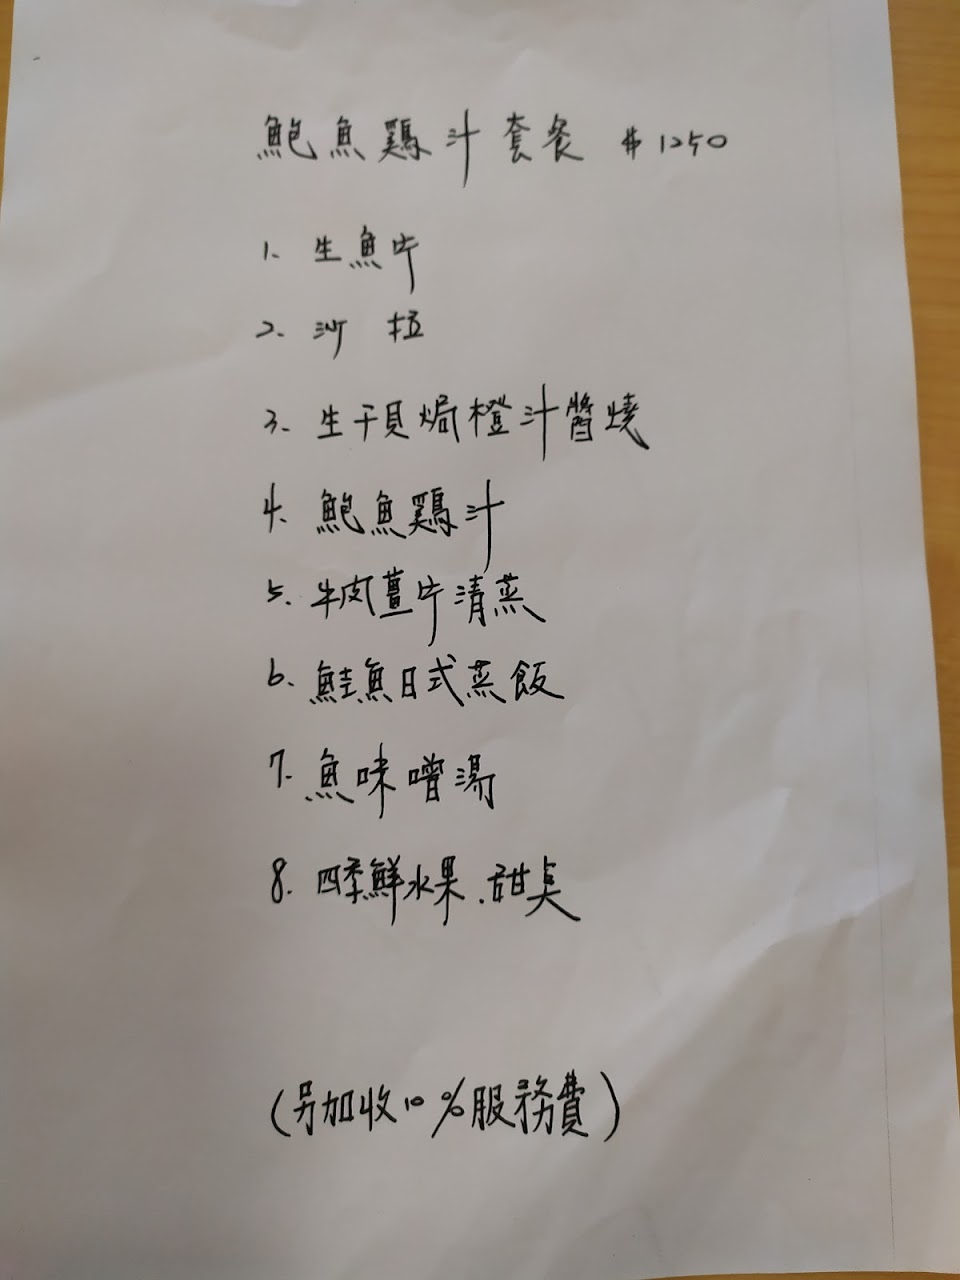 鮑魚鷄汁套餐 $1250
1. 生魚片
2. 沙拉
3. 生干貝焗橙汁醬燒
4. 鮑魚鷄汁
5. 牛皮薑片清蒸
6. 鮭魚日式蒸飯
7. 魚味噌湯
8. 四季鮮水果.甜点
(另加收10%服務費)